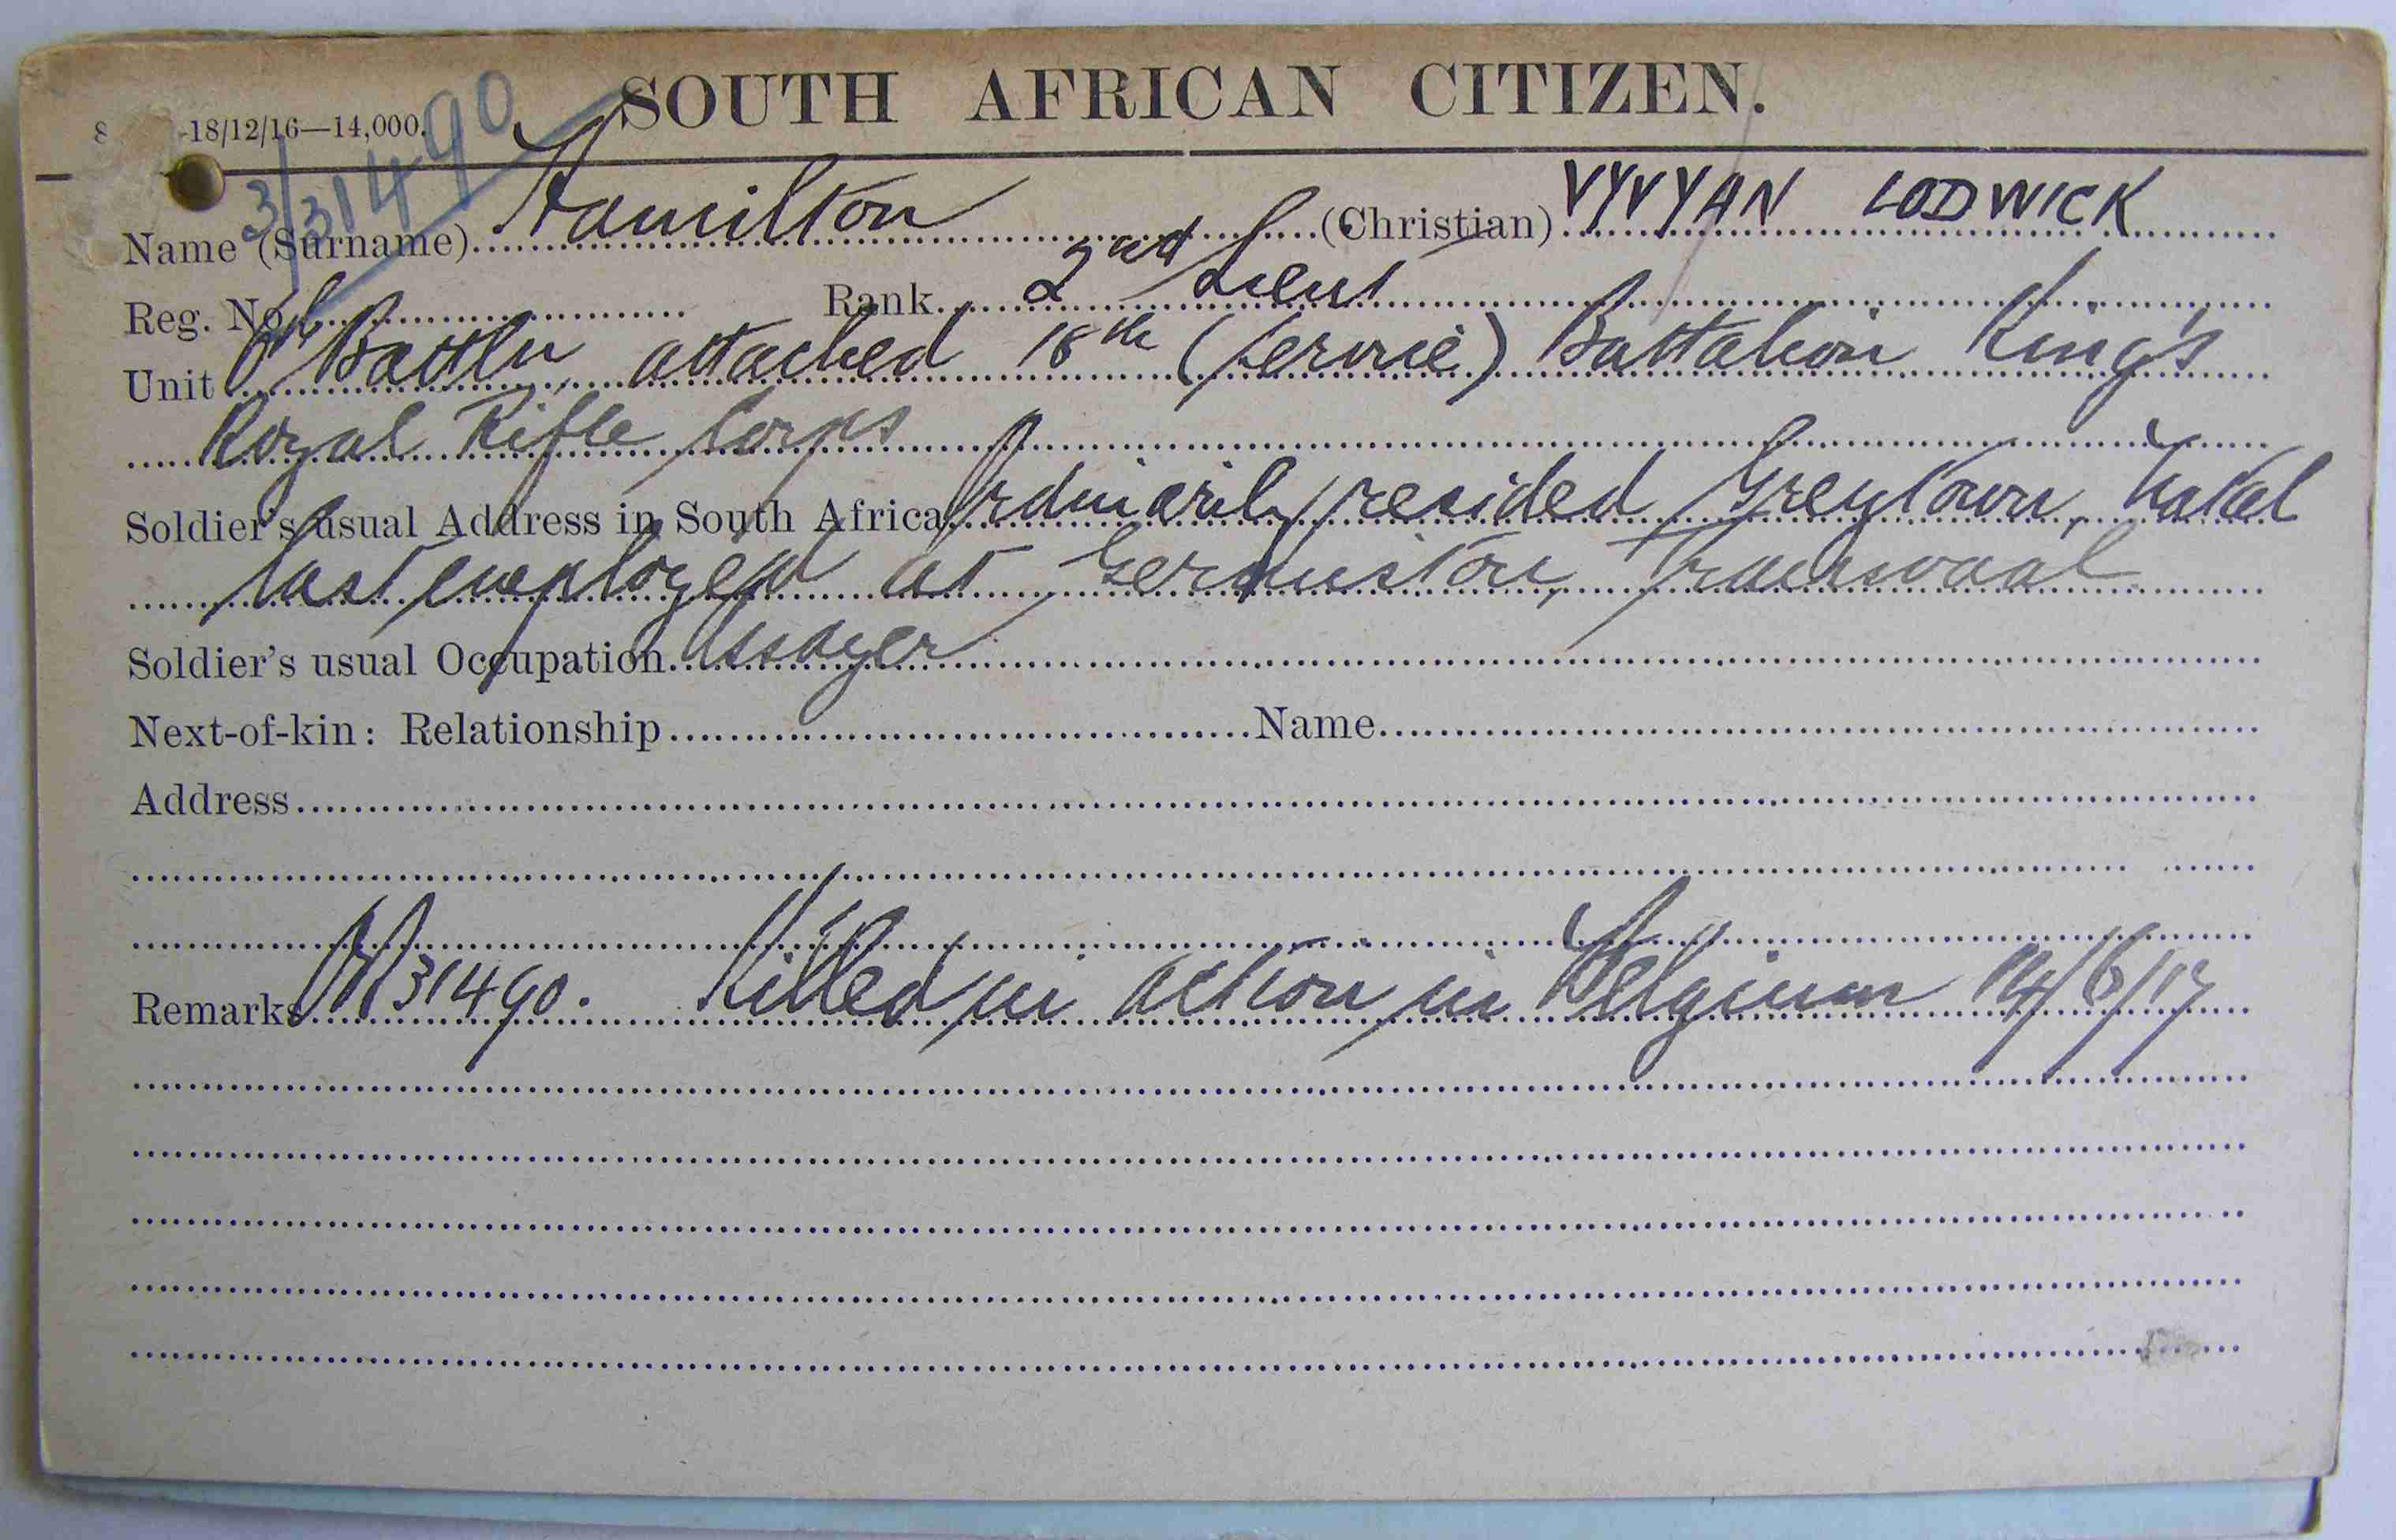 SOUTH AFRICAN CITIZEN.
-18/12/16—14,000.
3/31490
Name (Surname) Hamilton (Christian) VYVYAN LODWICK
Reg. No. Rank 2nd Lieut
Unit 6th Battln, attached 18th (Service) Battalion King's
Royal Rifle Corps
Soldier's usual Address in South Africa Ordinarily resided Greytown, Natal
last employed at Germiston, Transvaal
Soldier's usual Occupation Assayer
Next-of-kin: Relationship Name
Address
Remarks 31490. Killed in action in Belgium 14/6/17